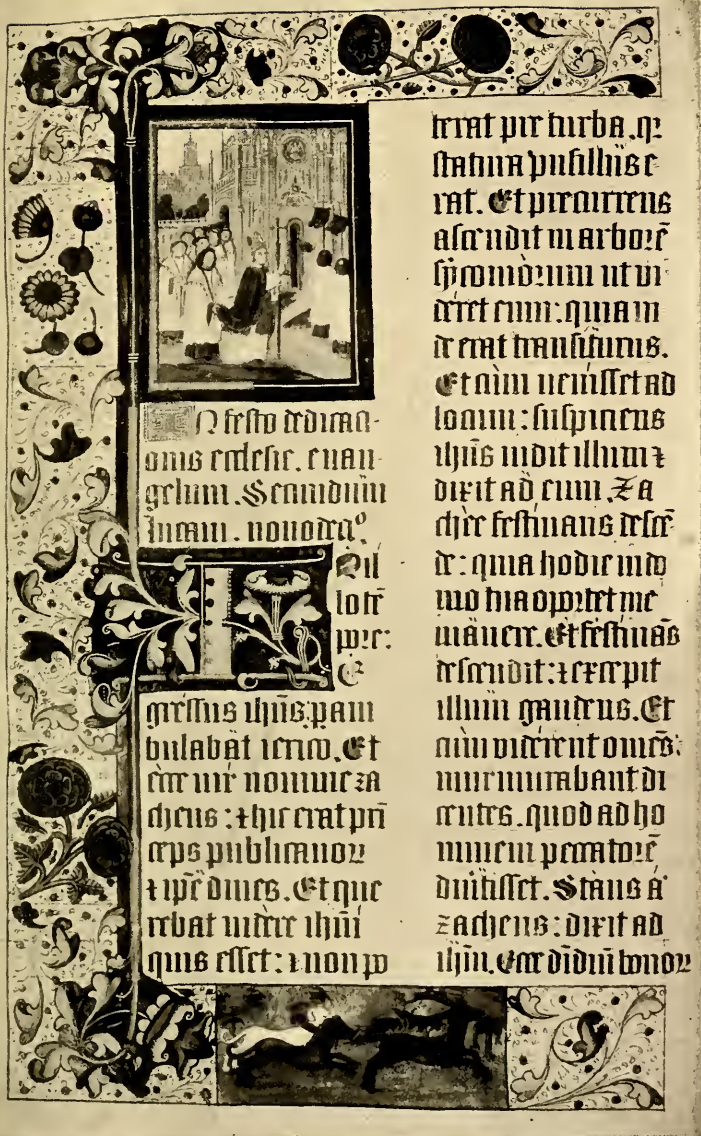 In festo dedicati-
onis ecclesie. euan-
gelium. Secundum
lucam. nonodecĩº
In il
lo tē
pore:
E
gressus ihūs: pam
bulabāt ierico. Et
ecce uir nomine za
cheus: ⁊ hic erat prī
ceps publicanoꝝ
⁊ ipē diues. Et que
rebat uidere ihūm
quis esset: ⁊ non po
terat pre turba. qꝛ
statura pusillus e
rat. Et precurrens
ascendit in arborē
sycomorum ut ui
deret eum: quia in
de erat transiturus.
Et cum uenisset ad
locum: suspiciens
ihūs uidit illum ⁊
dixit ad eum. Za
chee festinans descē
de: quia hodie in do
mo tua oportet me
manere. Et festinās
descendit: ⁊ excepit
illum gaudens. Et
cum uiderent omēs:
murmurabant di
centes. quod ad ho
minem peccatorē
diuertisset. Stans ā
zacheus: dixit ad
ihūm. Ecce dīdiū bonoꝝ